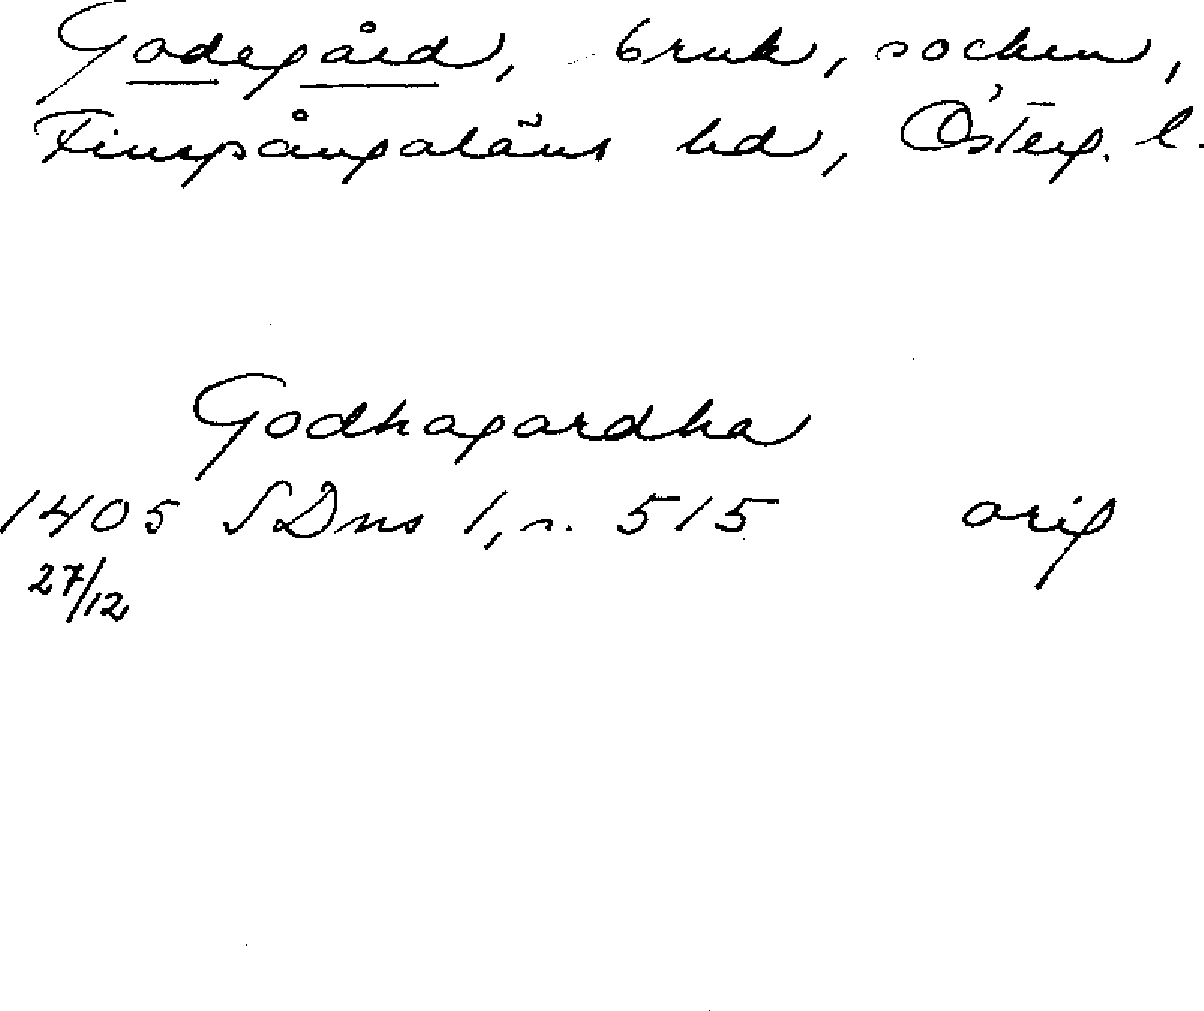 Godegård, bruk, socken,
Finspångaläns hd, Österg. l.
Godhagardha
1405 SDns 1, s. 515 orig
27/12